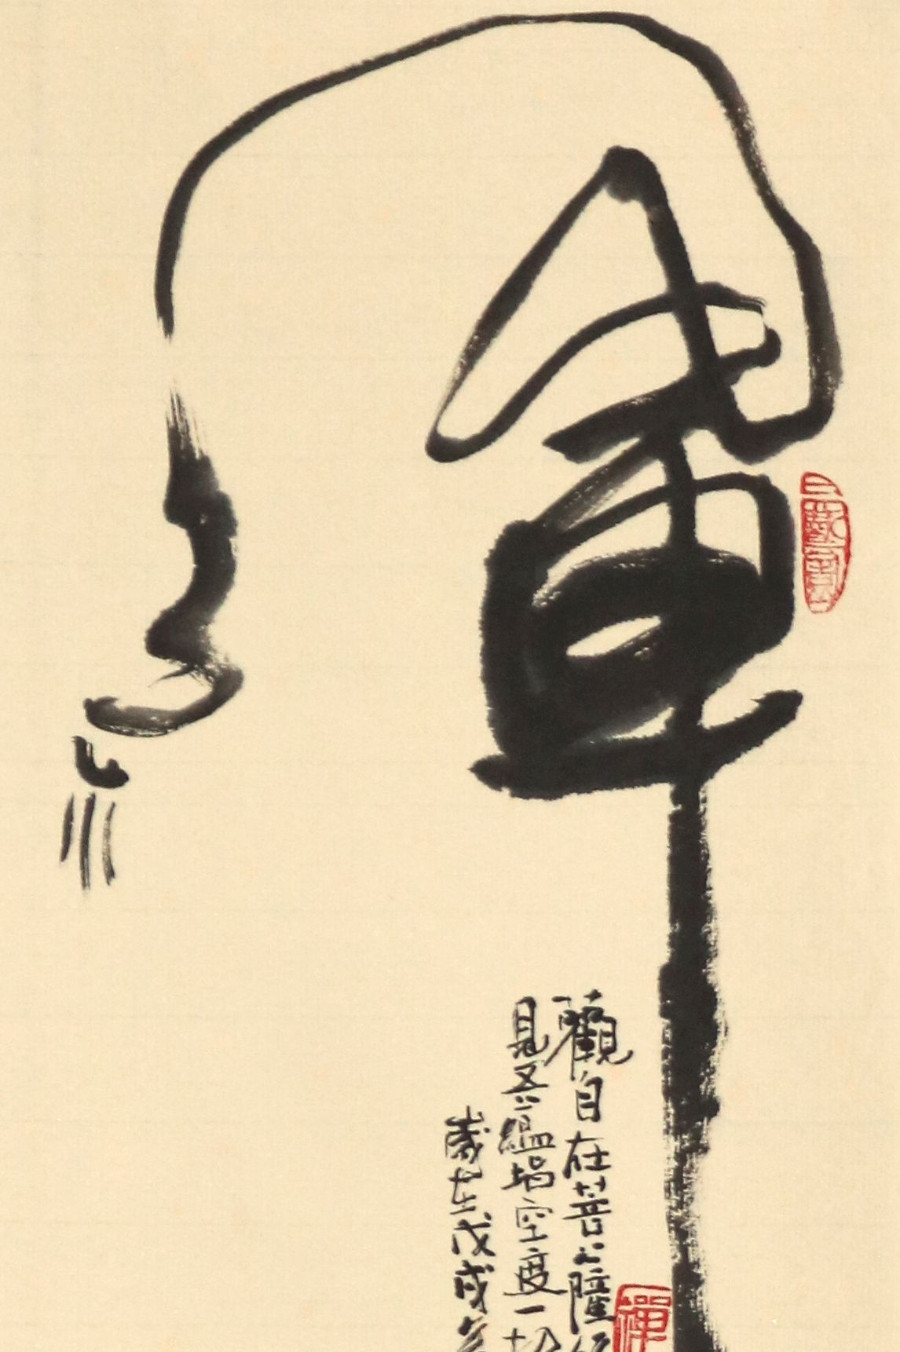 禪
觀自在菩薩
見五蘊皆空度一切
歲在戊戌
禪